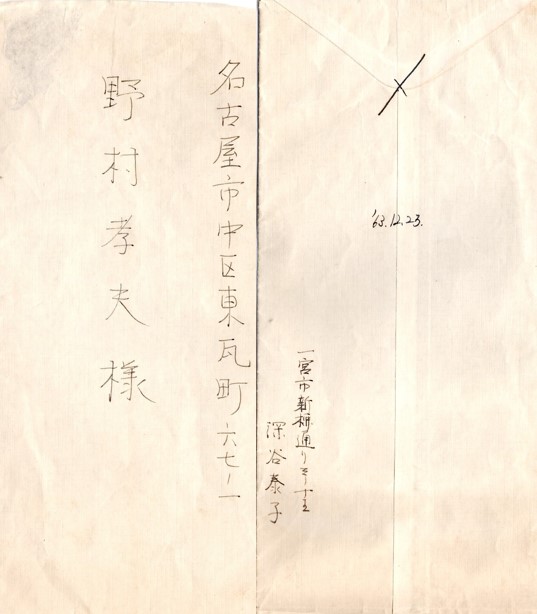 名古屋市中区東瓦町六七ノ一
野村孝夫様
'63.12.23.
一宮市新柳通り
深谷泰子